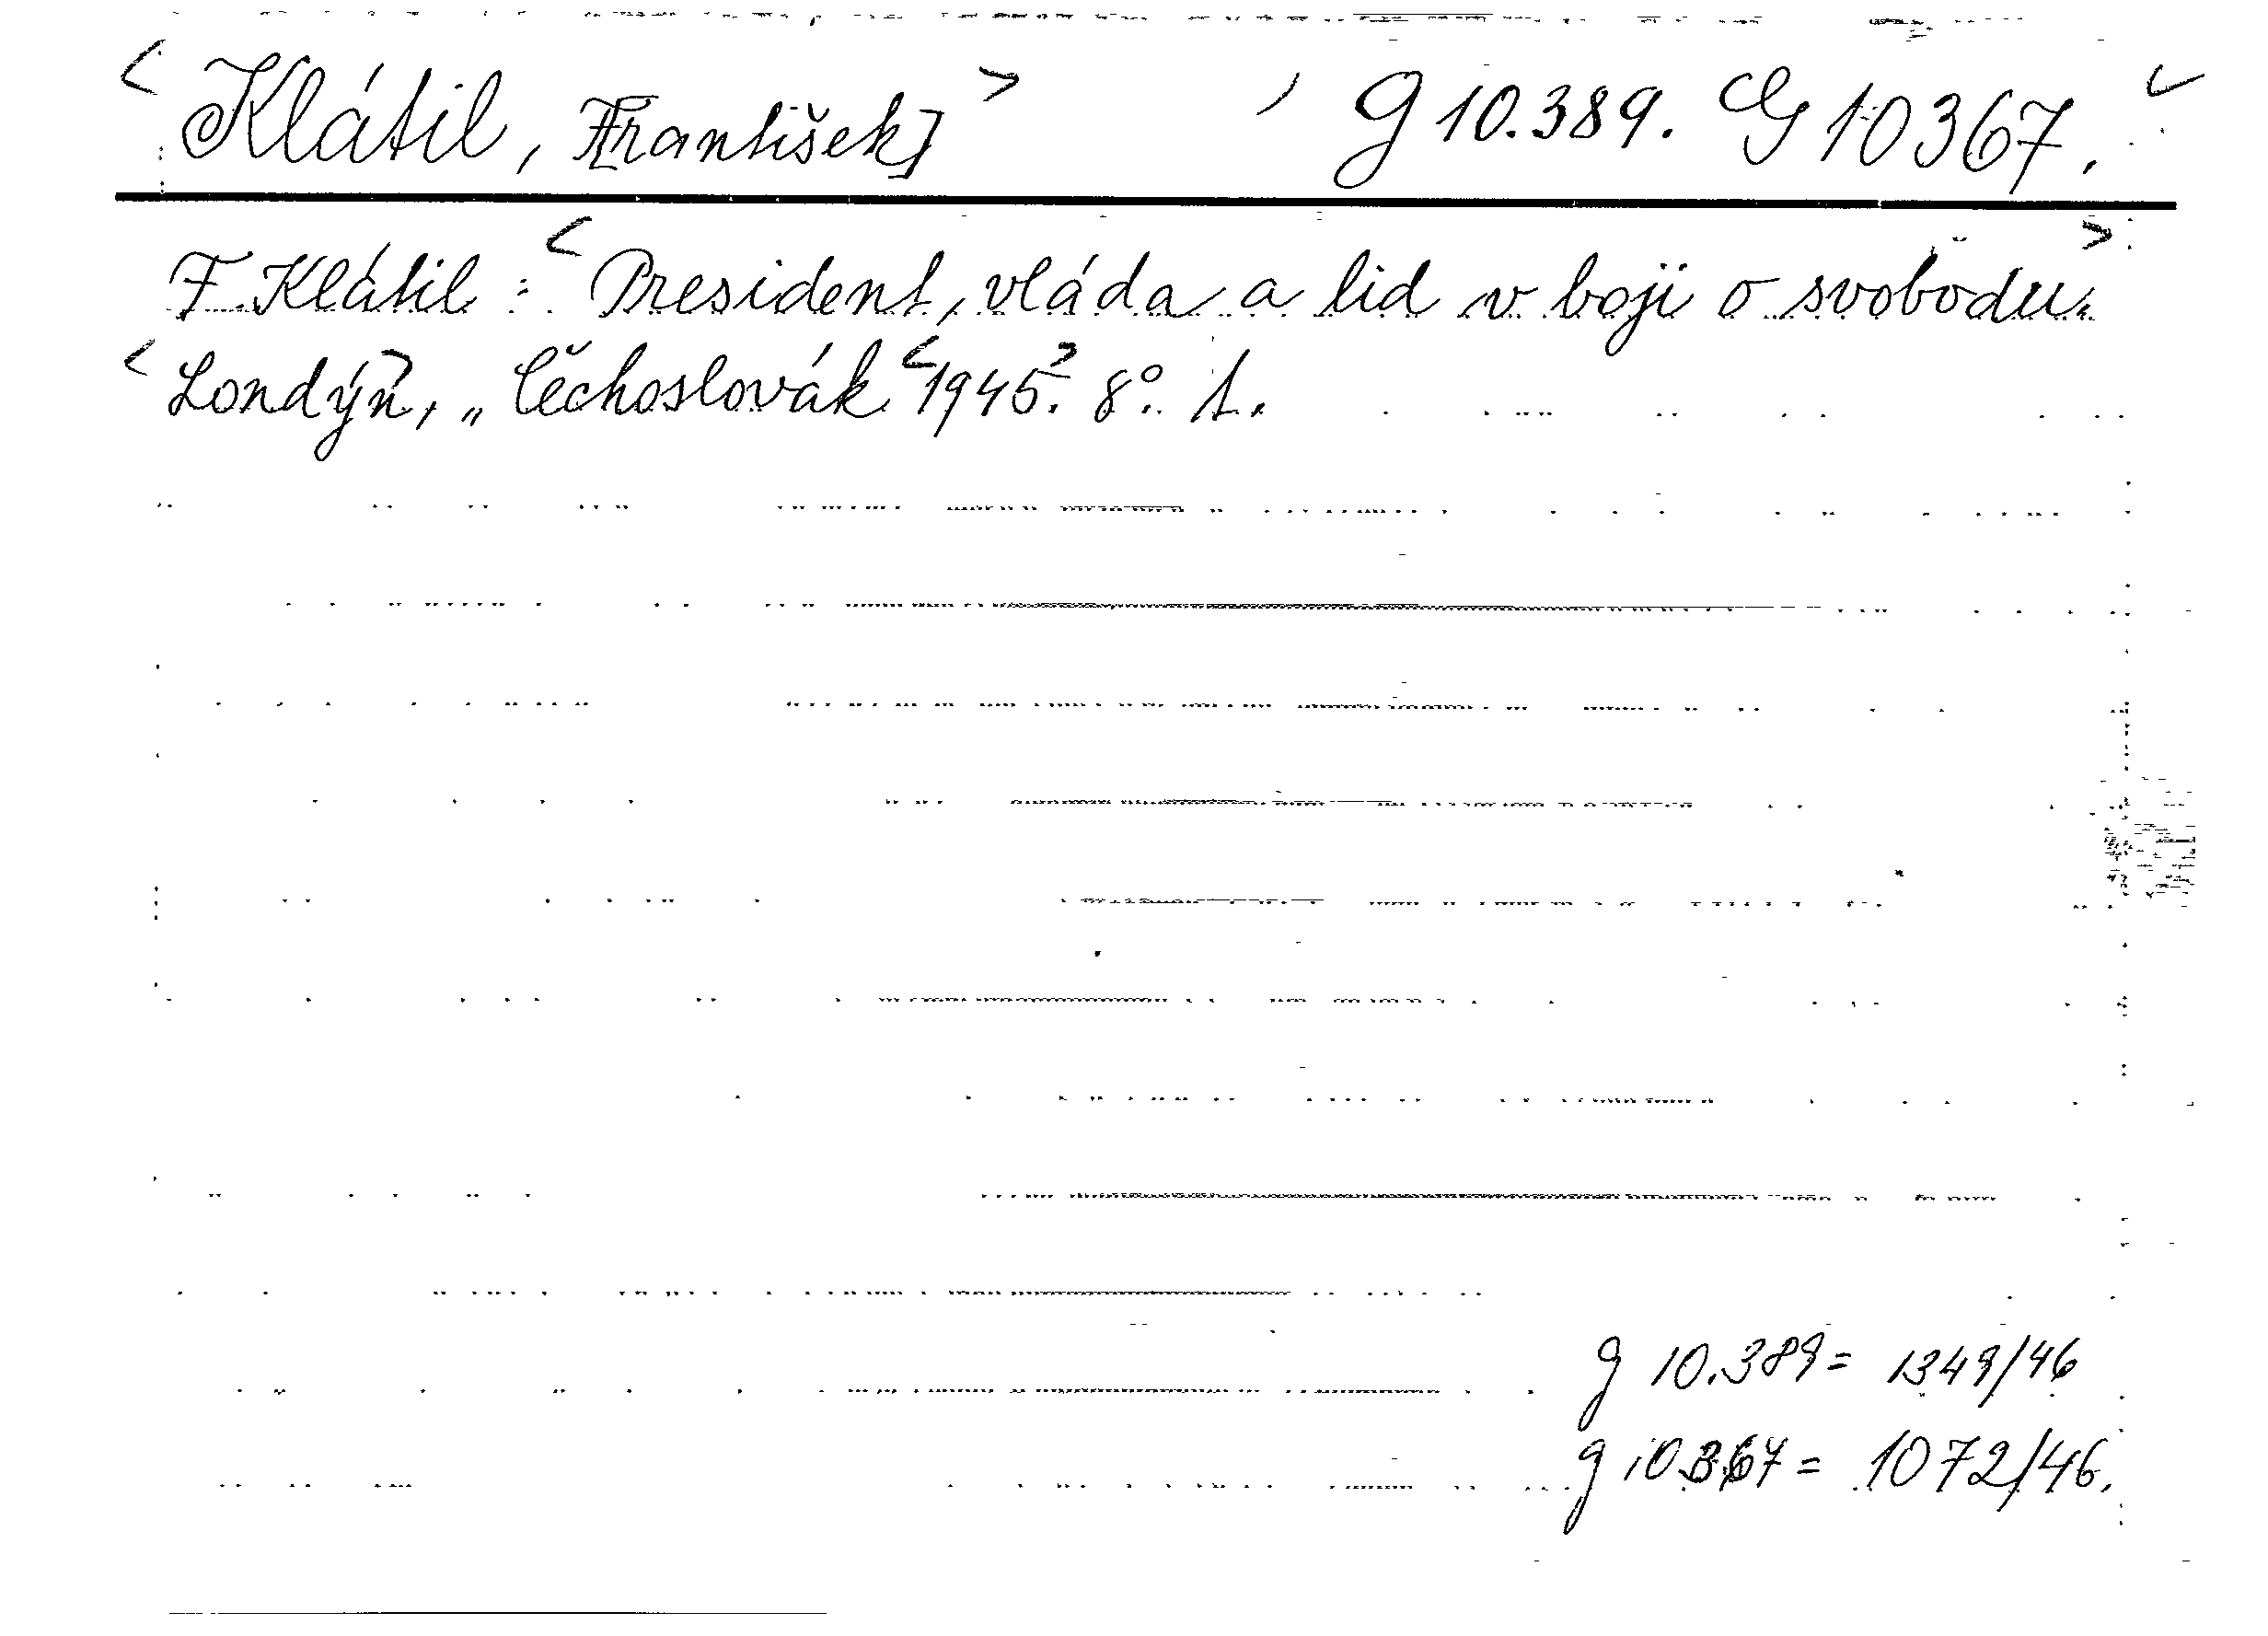 <Klátil, F[rantišek]> G 10.389. G 10367.
F. Klátil: <President, vláda a lid v boji o svobodu.>
<Londýn>, „Čechoslovák <1945>. 8°. 1.
g 10.389 = 1349/46
g 10367 = 1072/46.